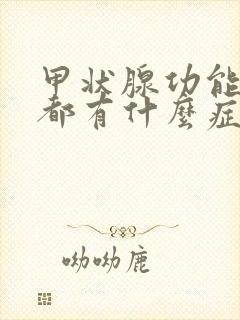 甲状腺功能
都有什麼症
呦呦鹿